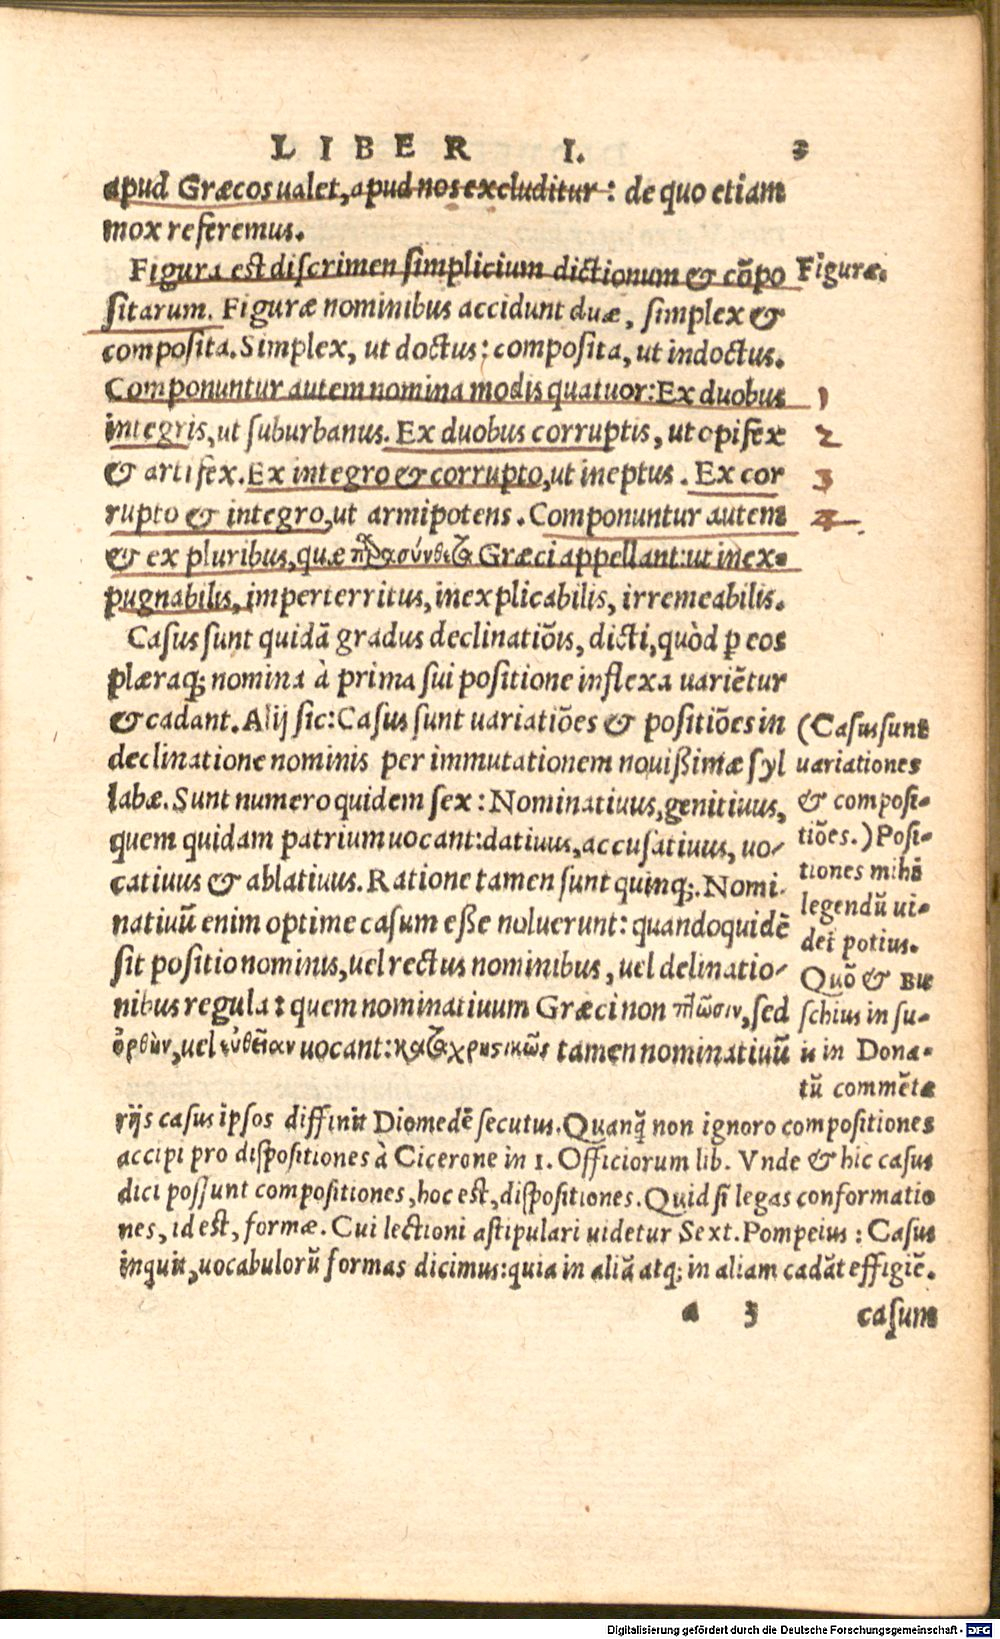 LIBER I. 3
apud Græcos ualet, apud nos excluditur: de quo etiam
mox referemus.
Figura est discrimen simplicium dictionum & cõpo
sitarum. Figuræ nominibus accidunt duæ, simplex &
composita. Simplex, ut doctus: composita, ut indoctus.
Componuntur autem nomina modis quatuor: Ex duobus
integris, ut suburbanus. Ex duobus corruptis, ut opifex
& artifex. Ex integro & corrupto, ut ineptus. Ex cor
rupto & integro, ut armipotens. Componuntur autem
& ex pluribus, quæ παρασύνθετα Græci appellant: ut inex-
pugnabilis, imperterritus, inexplicabilis, irremeabilis.
Casus sunt quidã gradus declinatiõis, dicti, quòd ꝑ eos
plæraqꝫ nomina à prima sui positione inflexa variẽtur
& cadant. Alij sic: Casus sunt uariatiões & positiões in
declinatione nominis per immutationem nouißimæ syl
labæ. Sunt numero quidem sex: Nominatiuus, genitiuus,
quem quidam patrium uocant: datiuus, accusatiuus, uo-
catiuus & ablatiuus. Ratione tamen sunt quinqꝫ. Nomi-
natiuũ enim optime casum eße noluerunt: quandoquidẽ
sit positio nominis, uel rectus nominibus, uel delinatio-
nibus regula: quem nominatiuum Græci non πτῶσιν, sed
ὀρθὴν, uel εὐθεῖαν uocant: καταχρηστικῶς tamen nominatiuũ
Figuræ.
1
2
3
4
(Casus sunt
uariationes
& composi-
tiões.) Posi-
tiones mihi
legendũ ui-
det potius.
Quõ & Bu
schius in su-
is in Dona-
tũ commẽta
rijs casus ipsos diffinit Diomedẽ secutus. Quanq̃ non ignoro compositiones
accipi pro dispositiones à Cicerone in 1. Officiorum lib. Vnde & hic casus
dici possunt compositiones, hoc est, dispositiones. Quid si legas conformatio
nes, id est, formæ. Cui lectioni astipulari uidetur Sext. Pompeius: Casus
inquit, uocabulorũ formas dicimus: quia in aliã atqꝫ in aliam cadãt effigiẽ.
a 3 casum
Digitalisierung gefördert durch die Deutsche Forschungsgemeinschaft - DFG